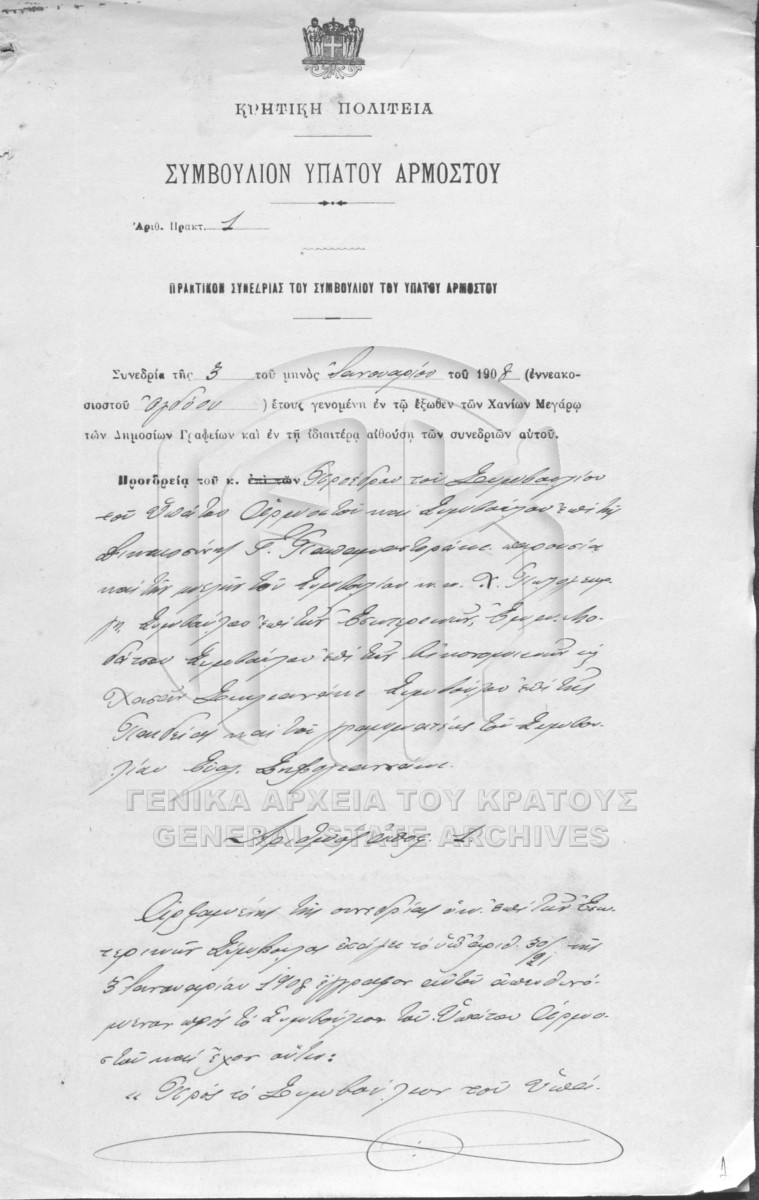 ΚΡΗΤΙΚΗ ΠΟΛΙΤΕΙΑ
ΣΥΜΒΟΥΛΙΟΝ ΥΠΑΤΟΥ ΑΡΜΟΣΤΟΥ
Ἀριθ. Πρακτ. 1
ΠΡΑΚΤΙΚΟΝ ΣΥΝΕΔΡΙΑΣ ΤΟΥ ΣΥΜΒΟΥΛΙΟΥ ΤΟΥ ΥΠΑΤΟΥ ΑΡΜΟΣΤΟΥ
Συνεδρία τῆς 3 τοῦ μηνὸς Ἰανουαρίου τοῦ 1908 (ἐννεακο-
σιοστοῦ ὀγδόου ) ἔτους γενομένη ἐν τῷ ἔξωθεν τῶν Χανίων Μεγάρῳ
τῶν Δημοσίων Γραφείων καὶ ἐν τῇ ἰδιαιτέρᾳ αἰθούσῃ τῶν συνεδριῶν αὐτοῦ.
Προεδρεία τοῦ κ. ἐπὶ τῶν Προέδρου τοῦ Συμβουλίου
τοῦ Ὑπάτου Ἁρμοστοῦ καὶ Συμβούλου ἐπὶ τῆς
Δικαιοσύνης Γ. Παπαμαστοράκη παρουσίᾳ
καὶ τῶν μελῶν τοῦ Συμβουλίου κ. κ. Χ.
Συμβούλου ἐπὶ τῶν Ἐσωτερικῶν, Ἐμμ.
Συμβούλου ἐπὶ τῶν Οἰκονομικῶν κ
Χασὰν Σκυλιανάκη Συμβούλου ἐπὶ τῆς
Παιδείας καὶ τοῦ γραμματέως τοῦ Συμβου-
λίου
ΓΕΝΙΚΑ ΑΡΧΕΙΑ ΤΟΥ ΚΡΑΤΟΥΣ
GENERAL STATE ARCHIVES
Ἀριθμὸς 1.
Ἀρξαμένης τῆς συνεδρίας ὁ κ. ἐπὶ τῶν Ἐσω-
τερικῶν Σύμβουλος τὸ ὑπ' ἀριθ. 30/21 τῆς
3 Ἰανουαρίου 1908 ἔγγραφον αὐτοῦ ἀπευθυνό-
μενον πρὸς τὸ Συμβούλιον τοῦ Ὑπάτου Ἁρμο-
στοῦ καὶ ἔχον οὕτω:
« Πρὸς τὸ Συμβούλιον τοῦ Ὑπά-
1